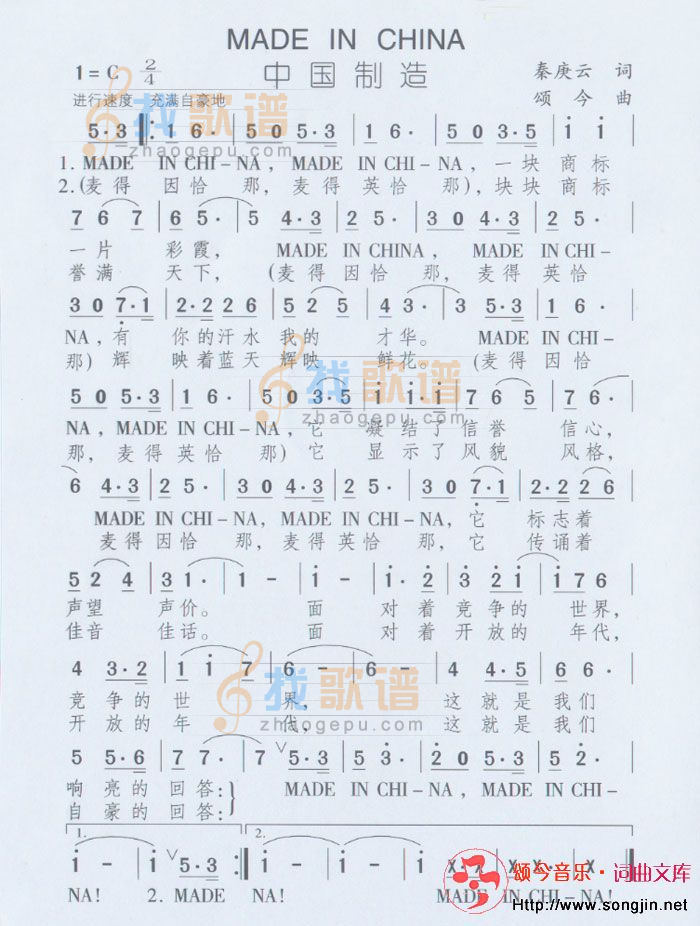 MADE IN CHINA
1=C 2/4 中国制造 秦庚云 词
进行速度 充满自豪地 颂今 曲
找歌谱
zhaogepu.com
5·3 1 6· 5 0 5·3 1 6· 5 0 3·5 i i
1. MADE IN CHI-NA, MADE IN CHI-NA, 一块 商标
2.(麦得 因恰 那, 麦得 英恰 那), 块块 商标
7 6 7 6 5· 5 4·3 2 5· 3 0 4·3 2 5·
一片 彩霞, MADE IN CHINA, MADE IN CHI-
誉满 天下, (麦得 因恰 那, 麦得 英恰
3 0 7·1 2·2 2 6 5 2 5 4 3· 3 5·3 1 6·
NA, 有 你的汗水 我的 才华。 MADE IN CHI-
那) 辉 映着蓝天 辉映 鲜花。 (麦得 因恰
找歌谱
zhaogepu.com
5 0 5·3 1 6· 5 0 3·5 i i·1 7 6 5 7 6·
NA, MADE IN CHI-NA, 它 凝结了信誉 信心,
那, 麦得 英恰 那) 它 显示了风貌 风格,
6 4·3 2 5· 3 0 4·3 2 5· 3 0 7·1 2·2 2 6
MADE IN CHI-NA, MADE IN CHI-NA, 它 标志着
麦得 因恰 那, 麦得 英恰 那, 它 传诵着
5 2 4 3 1· 1 - i - i·2 3 2 i i 7 6
声望 声价。 面 对着竞争的 世界,
佳音 佳话。 面 对着开放的 年代,
找歌谱
zhaogepu.com
4 3·2 1 i 7 6 - 6 - 4 4·5 6 6·
竞争的世 界, 这就是我们
开放的年 代, 这就是我们
5 5·6 7 7· 7 ∨ 5·3 5 3· 2 0 2·3 5 2·
响亮的回答:} MADE IN CHI-NA, MADE IN CHI-
自豪的回答:}
1. 2.
i - i ∨ 5·3 i - i - i X·X X X· X
NA! 2. MADE NA! MADE IN CHI-NA!
颂今音乐·词曲文库
Http://www.songjin.net